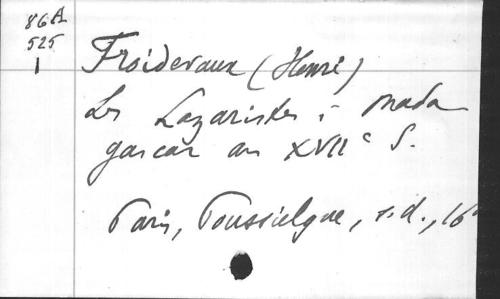 86A
525
1
Froidevaux (Henri)
Les Lazaristes à Mada
gascar au XVIIe S.
Paris, Poussielgue, s.d., 16°